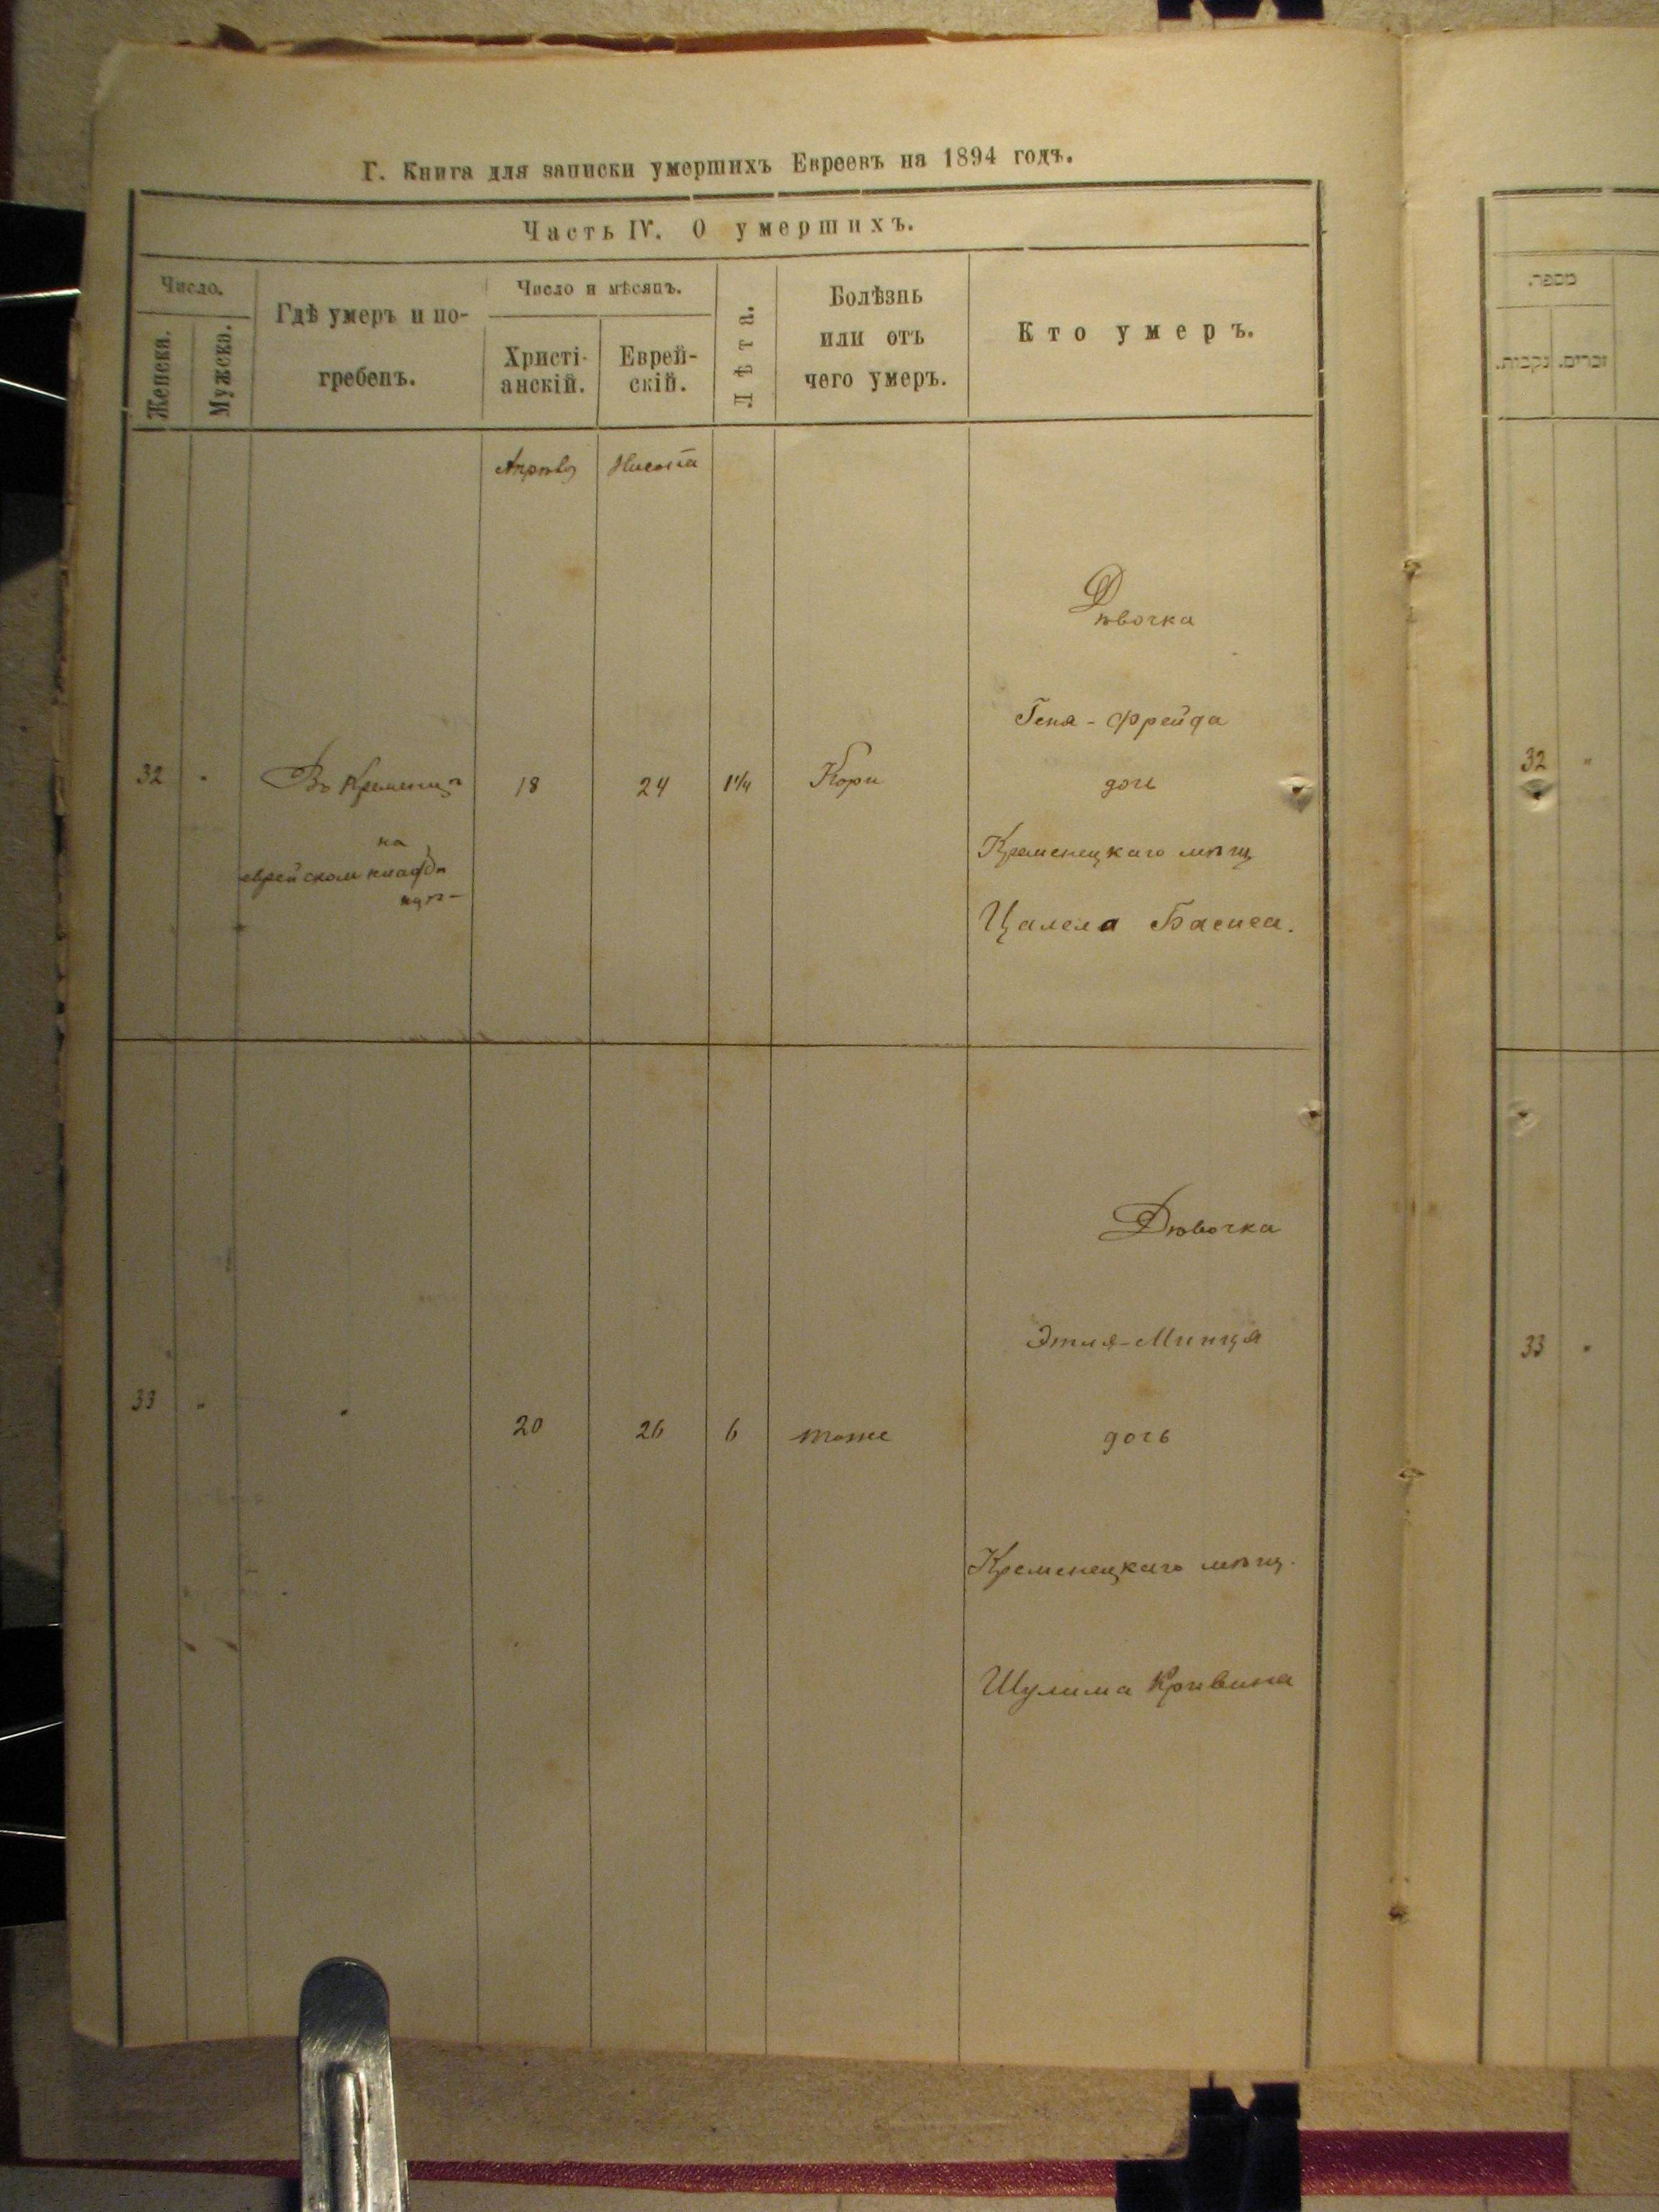 Г. Книга для записки умершихъ Евреевъ на 1894 годъ.
Часть IV. О умершихъ.
Число.
Женска.
Мужска.
Гдѣ умеръ и по-
гребенъ.
Число и мѣсяцъ.
Христі-
анскій.
Еврей-
скій.
Лѣта.
Болѣзнь
или отъ
чего умеръ.
Кто умеръ.
Апрѣль
Дѣвочка
Геня-Фрейда
32 " Въ Кременцѣ 18 24 1 1/4 Кори дочь
на
еврейском кладби
щѣ
Кременецкаго мѣщ
Цалела Басиса.
Дѣвочка
Этля-Минця
33 " " 20 26 6 тоже дочь
Кременецкаго мѣщ.
Шулима Кривина
מספר.
נקבות.
זכרים.
32 "
33 "